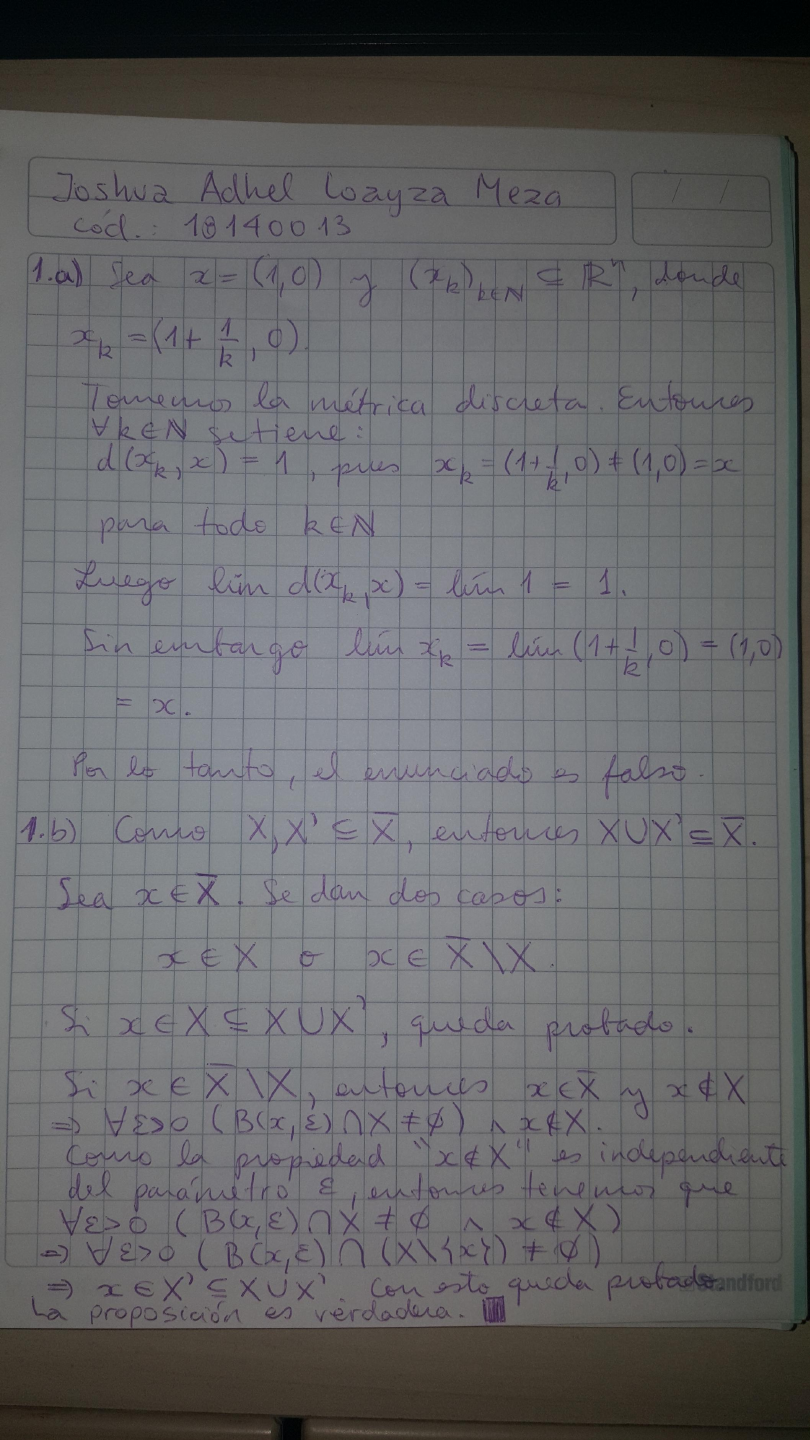 Joshua Adhel Loayza Meza
cód.: 18140013
/ /
1.a) Sea x = (1,0) y (x_k)_{k∈ℕ} ⊆ ℝⁿ, donde
x_k = (1 + 1/k, 0).
Tomemos la métrica discreta. Entonces
∀k∈ℕ se tiene:
d(x_k, x) = 1, pues x_k = (1+1/k, 0) ≠ (1,0) = x
para todo k∈ℕ
Luego lím d(x_k, x) = lím 1 = 1.
Sin embargo lím x_k = lím (1+1/k, 0) = (1,0)
= x.
Por lo tanto, el enunciado es falso.
1.b) Como X, X' ⊆ X̅, entonces X∪X' ⊆ X̅.
Sea x∈X̅. Se dan dos casos:
x∈X o x∈X̅\X.
Si x∈X ⊆ X∪X', queda probado.
Si x∈X̅\X, entonces x∈X̅ y x∉X
⇒ ∀ε>0 (B(x,ε)∩X ≠ ∅) ∧ x∉X.
Como la propiedad "x∉X" es independiente
del parámetro ε, entonces tenemos que
∀ε>0 (B(x,ε)∩X ≠ ∅ ∧ x∉X)
⇒ ∀ε>0 (B(x,ε)∩(X\{x}) ≠ ∅)
⇒ x∈X' ⊆ X∪X'. Con esto queda probado.
La proposición es verdadera.
standford